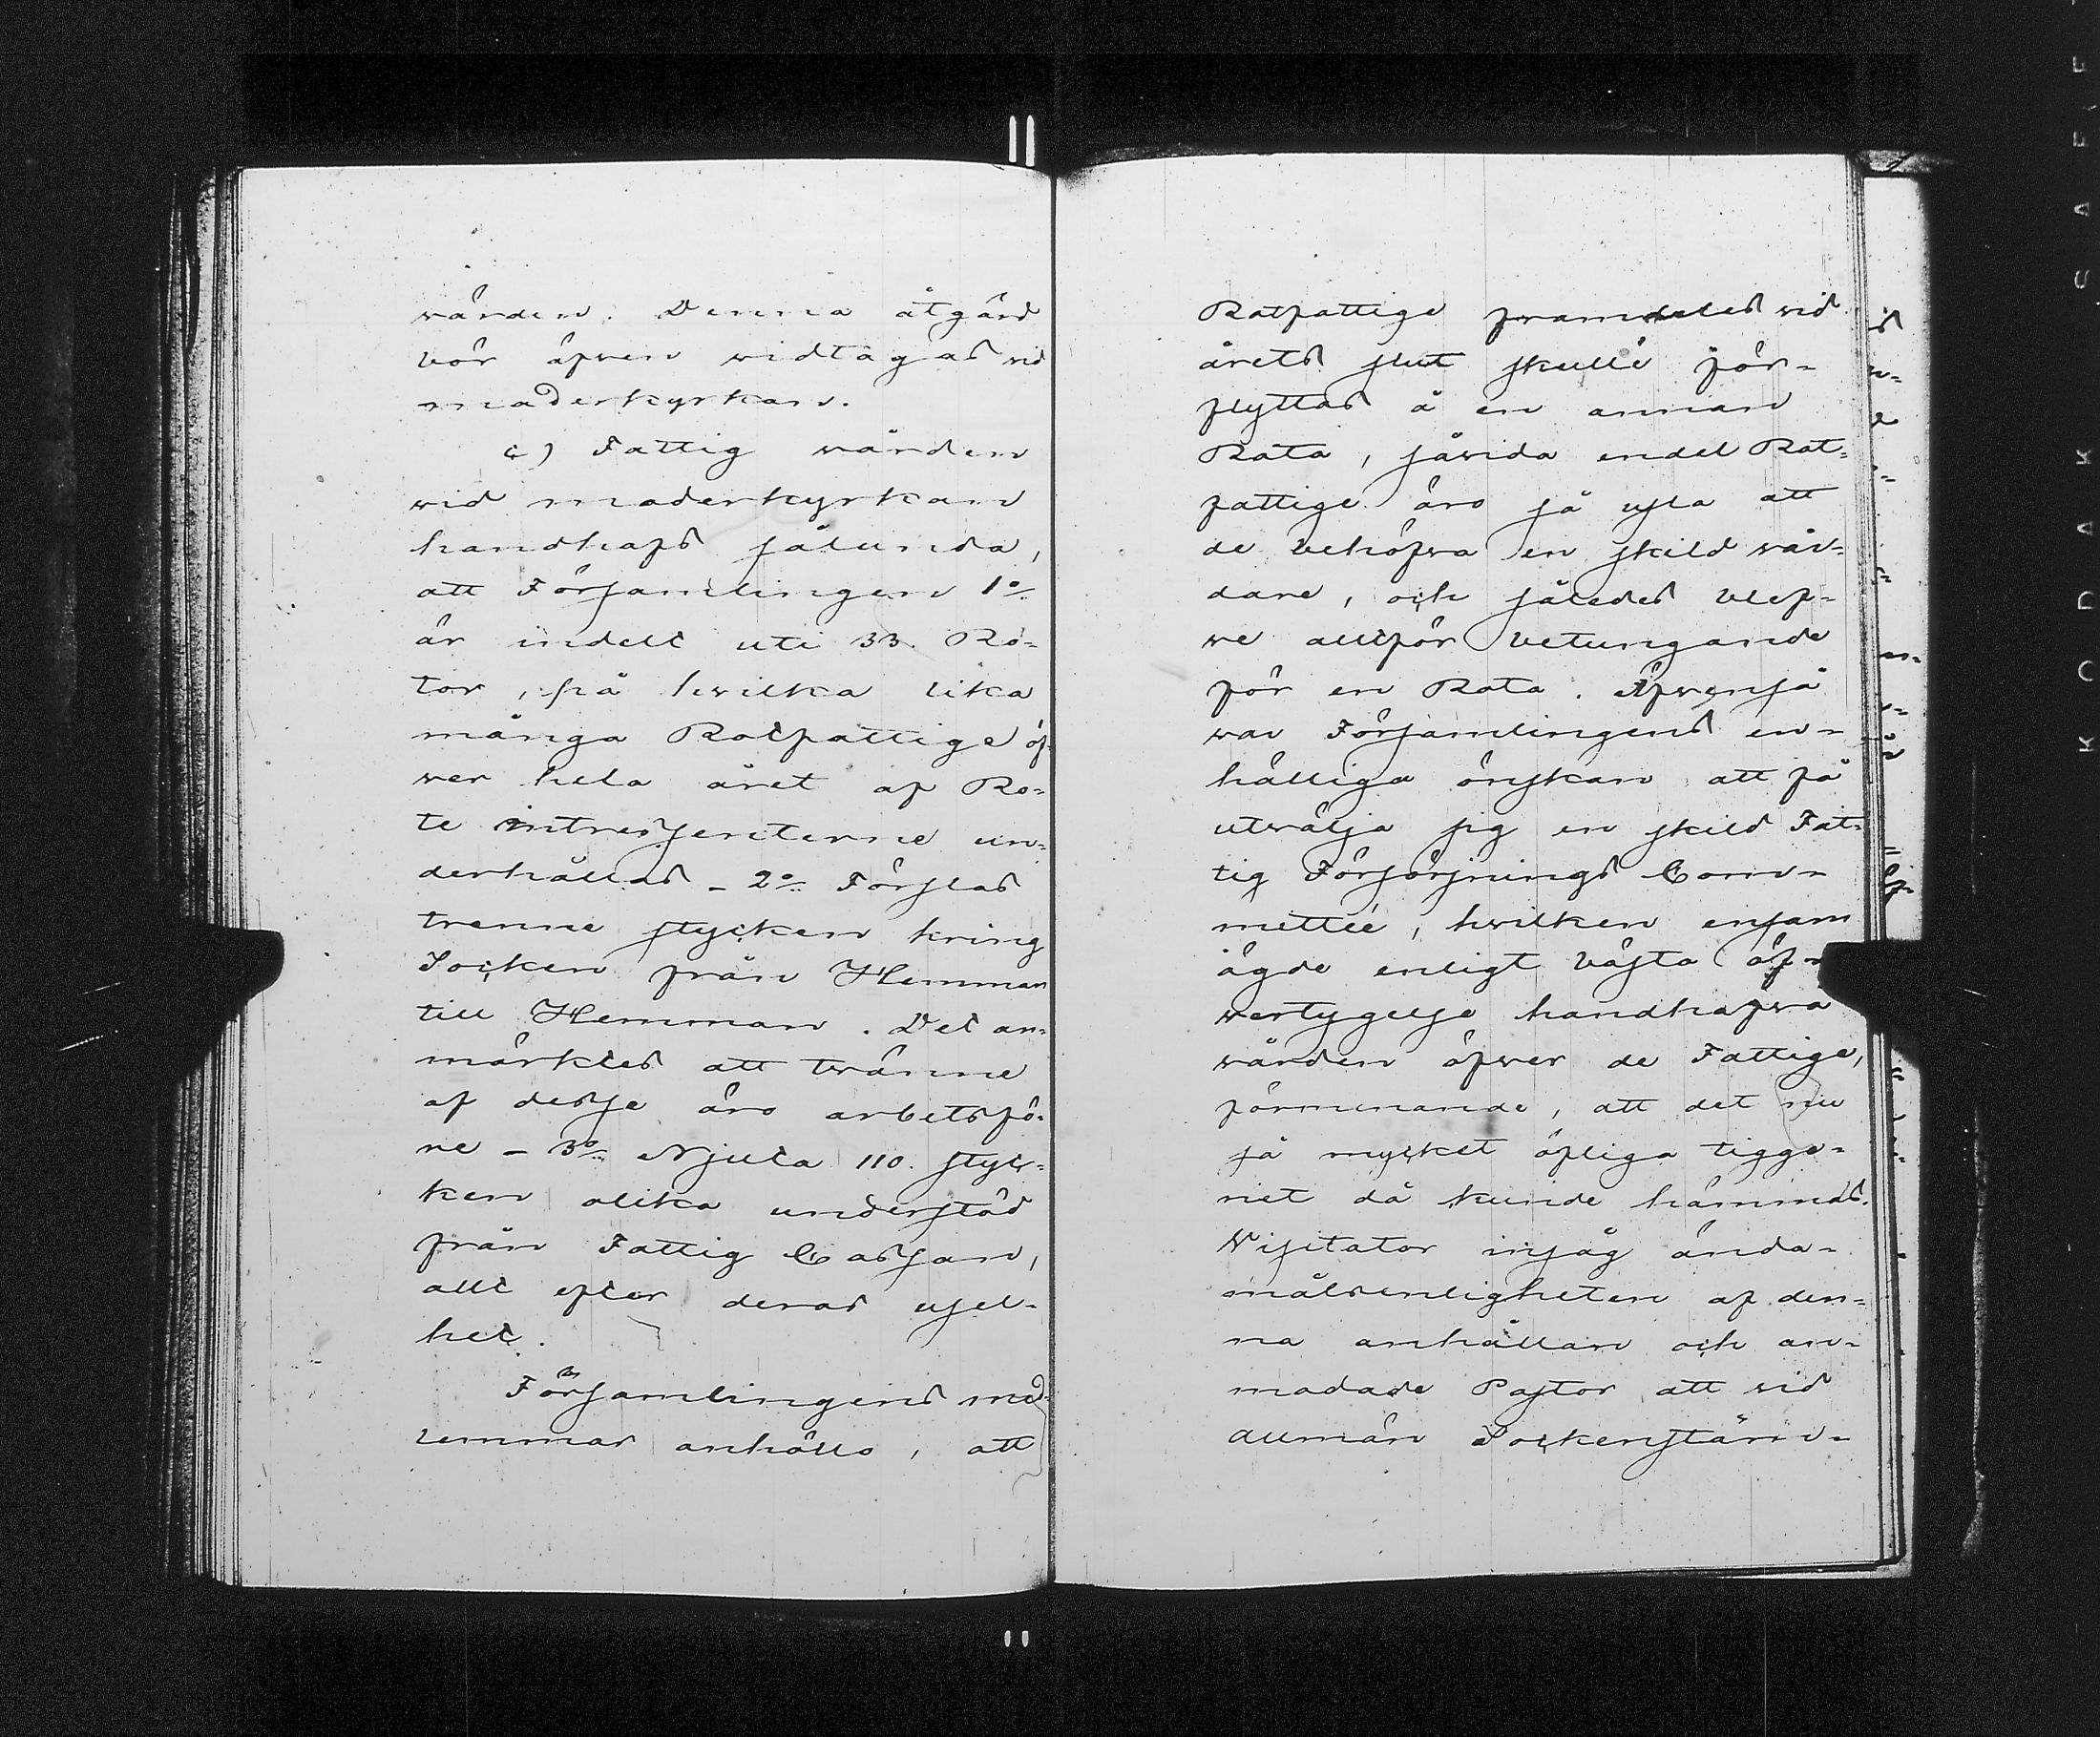 vården. Denna åtgärd
bör äfven vidtagas vid
moderkyrkan.
c) Fattig vården
vid moderkyrkan
handhafs sålunda,
att Församlingen 1o
är indelt uti 33. Ro-
tor, på hvilka lika
många Rotfattige öf-
ver hela året af Ro-
te intressenterne un-
derhållas – 2o Förslas
trenne stycken kring
Socken från Hemman
till Hemman. Det an-
märktes att tvänne
af desse äro arbetsfö-
re – 3o Njuta 110. styc-
ken olika understöd
från Fattig Cassan,
allt efter deras usel-
het.
Församlingens med-
lemmar anhöllo, att
Rotfattige framdeles vid
årets slut skulle för-
flyttas å en annan
Rota, såvida endel Rot-
fattige äro så usla att
de behöfva en skild vår-
dare, och således blef-
ve alltför betungande
för en Rota. Äfvenså
var Församlingens en-
hälliga önskan att få
utvälja sig en skild Fat-
tig Försörjnings Com-
mitteé, hvilken ensam
ägde enligt bästa öf-
vertygelse handhafva
vården öfver de Fattige,
förmenande, att det nu
så mycket öfliga tigge-
riet då kunde hämmas.
Visitator insåg ända-
målsenligheten af den-
na anhållan och an-
modade Pastor att vid
allmän Sockenstäm-
KODAK SAFE